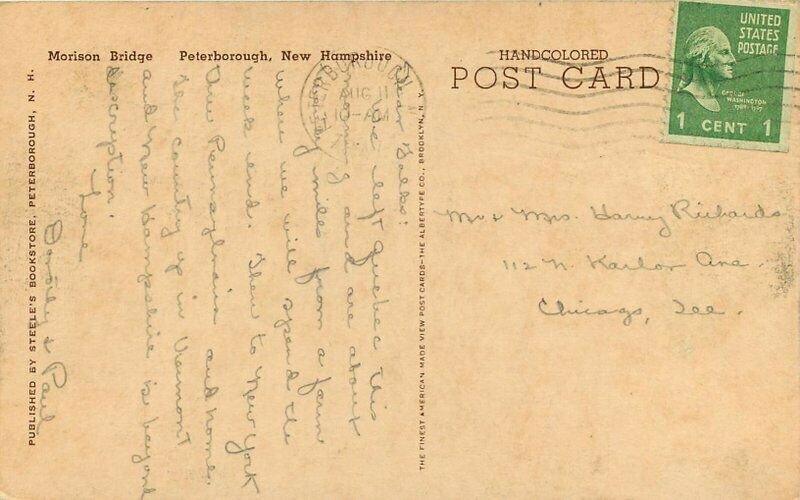 Morison Bridge Peterborough, New Hampshire
HANDCOLORED
POST CARD
UNITED
STATES
POSTAGE
GEORGE
WASHINGTON
1789-1797
1 CENT 1
AUG 11
10-AM
Dear Folks:
We left Quebec this
morning and are about
miles from a farm
where we will spend the
week end. Then to New York
Pennsylvania and home.
The country up in Vermont
and New Hampshire is beyond
description.
Love
Dorothy & Paul
Mr & Mrs. Harry Richards
112 N. Karlov Ave.
Chicago, Ill.
PUBLISHED BY STEELE'S BOOKSTORE, PETERBOROUGH, N. H.
THE FINEST AMERICAN MADE VIEW POST CARDS—THE ALBERTYPE CO., BROOKLYN, N. Y.